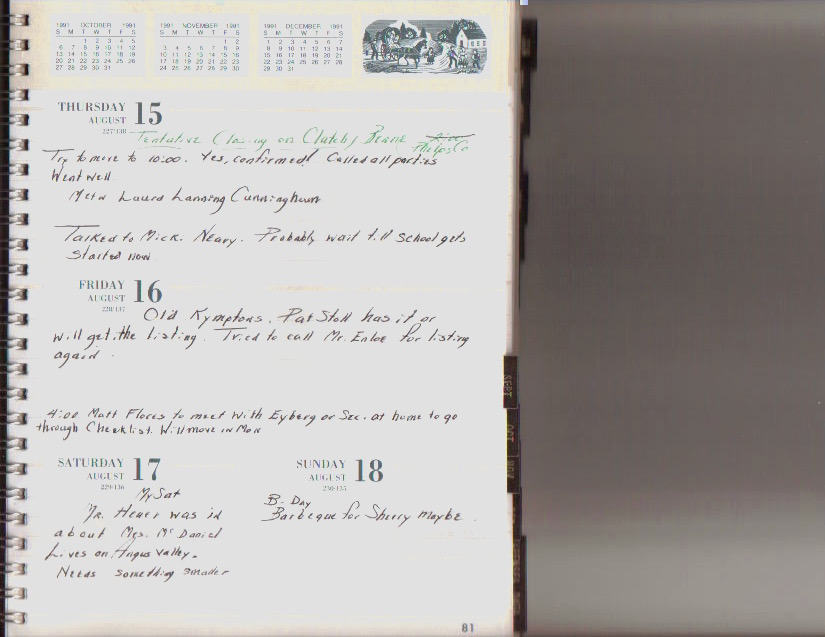 1991 OCTOBER 1991
S M T W T F S
1 2 3 4 5
6 7 8 9 10 11 12
13 14 15 16 17 18 19
20 21 22 23 24 25 26
27 28 29 30 31
1991 NOVEMBER 1991
S M T W T F S
1 2
3 4 5 6 7 8 9
10 11 12 13 14 15 16
17 18 19 20 21 22 23
24 25 26 27 28 29 30
1991 DECEMBER 1991
S M T W T F S
1 2 3 4 5 6 7
8 9 10 11 12 13 14
15 16 17 18 19 20 21
22 23 24 25 26 27 28
29 30 31
THURSDAY 15
AUGUST
227/138
Tentative Closing on Clutch/
Phelps Co
Try to move to 10:00. Yes, confirmed! Called all parties
Went well
Met w Laura Lanning Cunningham
Talked to Mick. Neary. Probably wait till school gets
started now
FRIDAY 16
AUGUST
228/137
Old Kymptons. Pat Stoll has it or
will get the listing. Tried to call Mr. Enloe for listing
again.
4:00 Matt Flores to meet with Eyberg or Sec. at home to go
through Checklist. Will move in Mon
SATURDAY 17
AUGUST
229/136
My Sat
Mr. Heuer was in
about Mrs. McDaniel
Lives on Angus Valley.
Needs something smaller
SUNDAY 18
AUGUST
230/135
B-Day
Barbeque for Sherry maybe.
81
SEPT
OCT
NOV